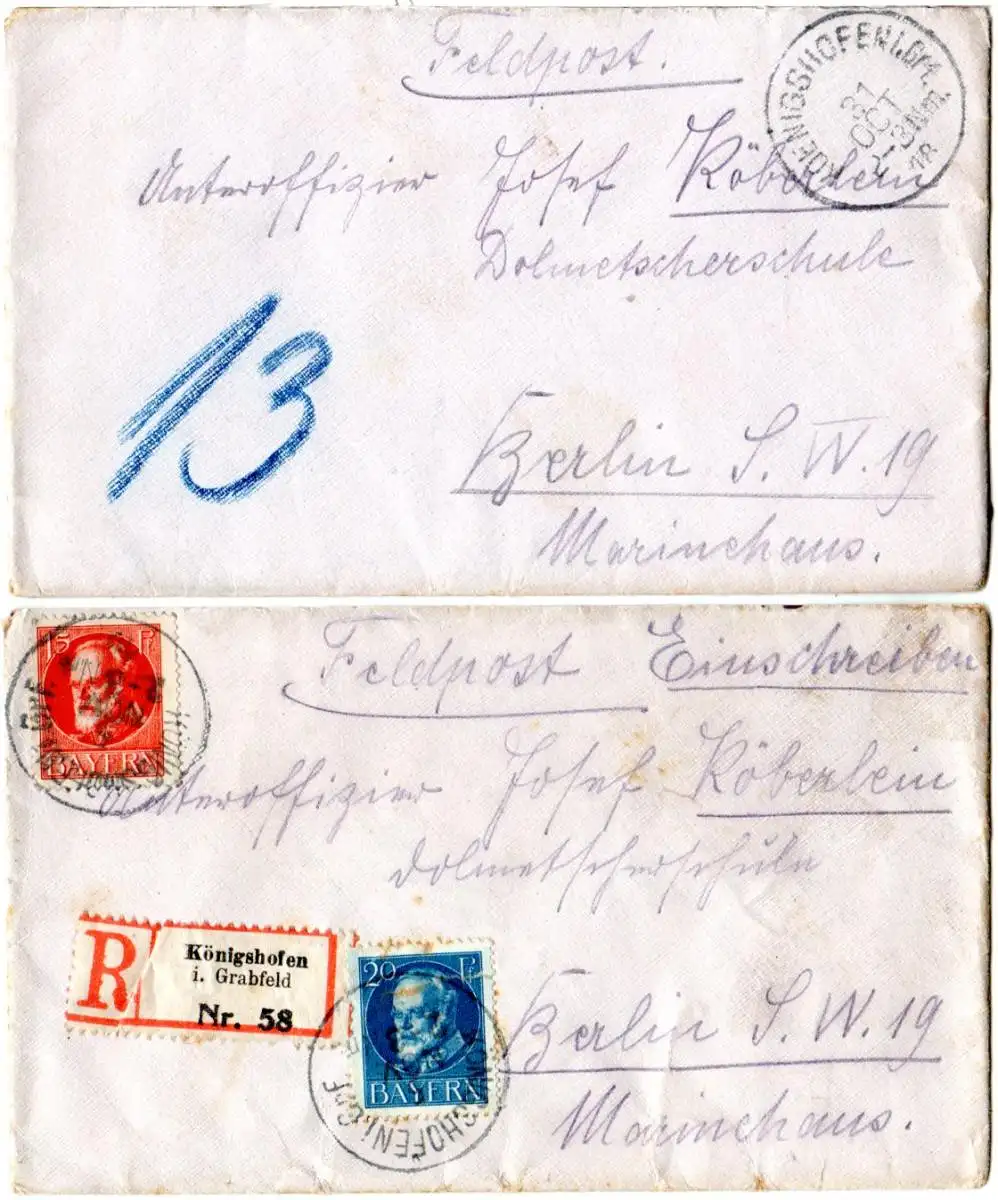 Feldpost.
KOENIGSHOFEN i. Grf.
31
OCT
2-3 Nm.
18
Unteroffizier Josef Köberlein
Dolmetscherschule
13
Berlin S. W. 19
Marinehaus.
15 Pf
BAYERN
Feldpost Einschreiben
Unteroffizier Josef Köberlein
Dolmetscherschule
R
Königshofen
i. Grabfeld
Nr. 58
20 Pf
BAYERN
Berlin S. W. 19
Marinehaus.